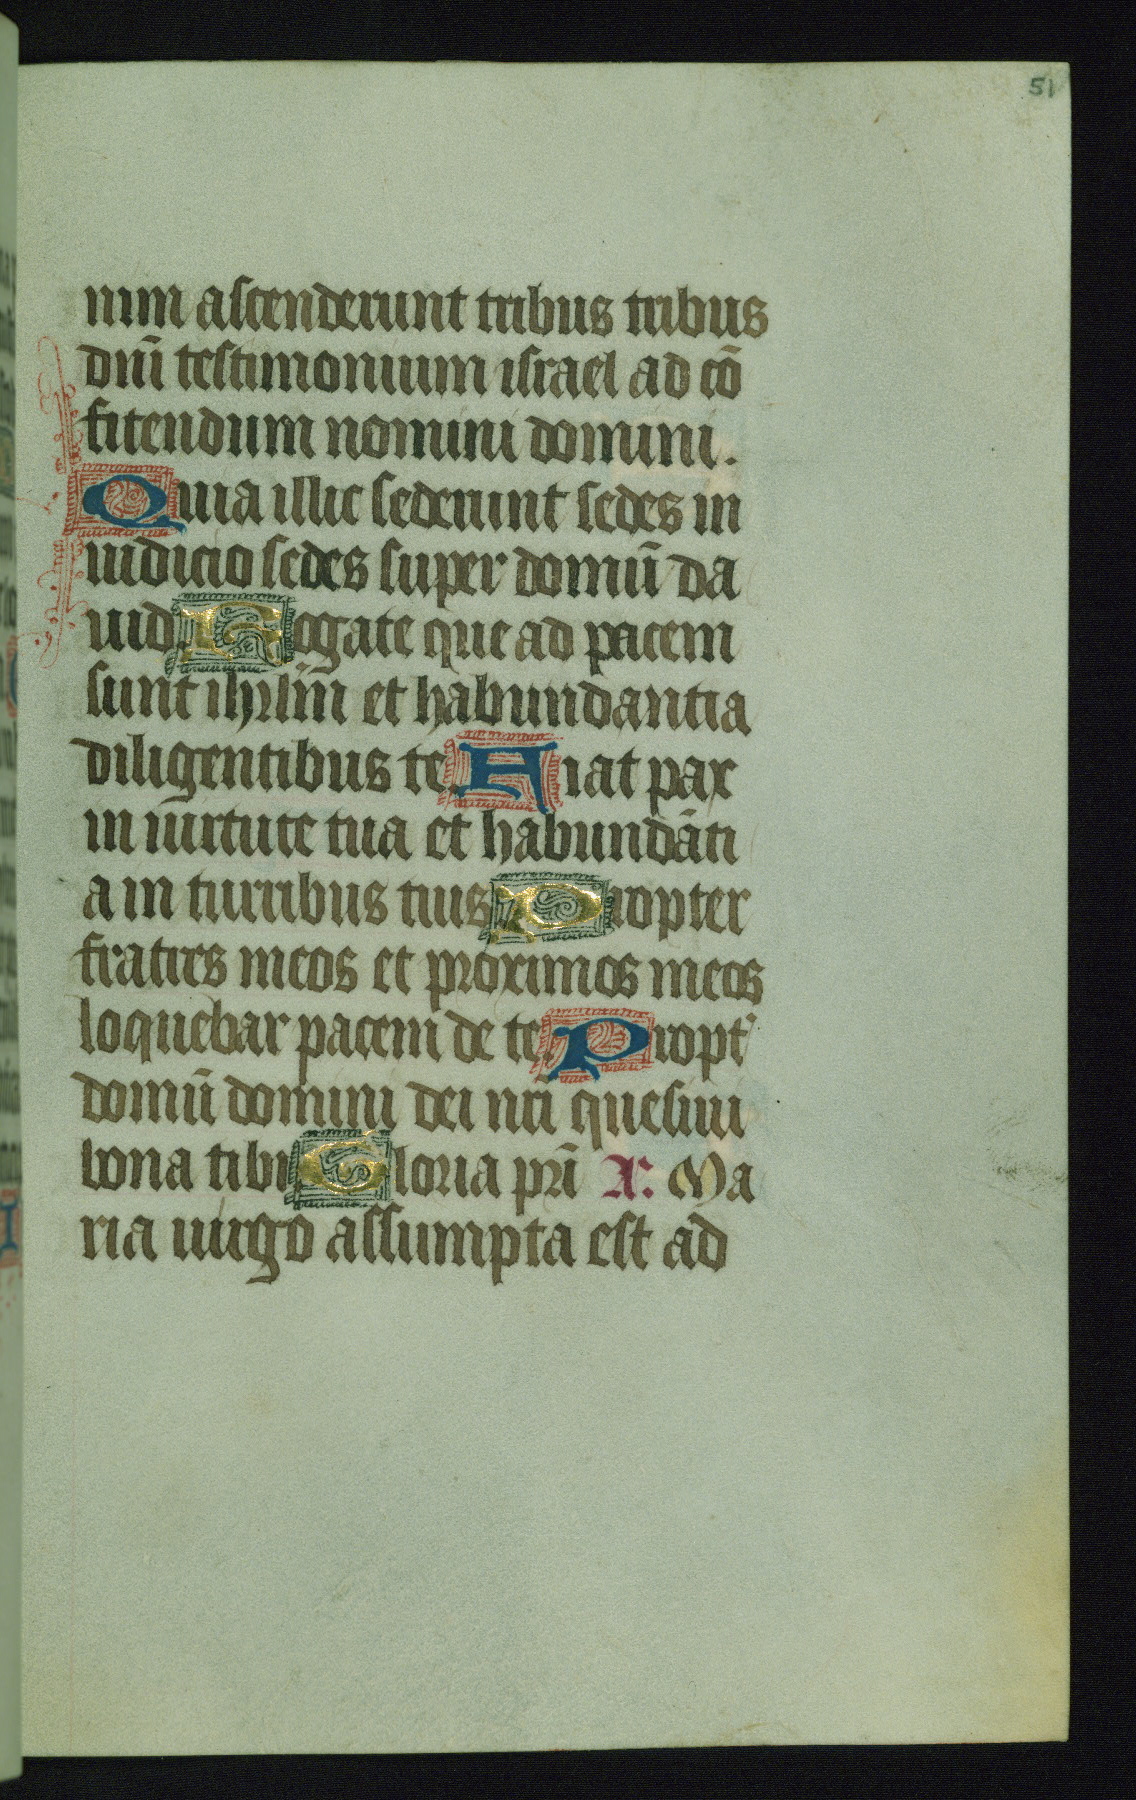 51
nim ascenderunt tribus tribus
dnī testimonium israel ad cō
fitendum nomini domini.
Quia illic sederunt sedes in
iudicio sedes super domū da
uid. Rogate que ad pacem
sunt ihrlm̄ et habundantia
diligentibus te. Fiat pax
in uirtute tua et habundāti
a in turribus tuis Propter
fratres meos et proximos meos
loquebar pacem de te. Propt'
domū domini dei nrī quesiui
bona tibi Gloria prī A'. Ma
ria uirgo assumpta est ad